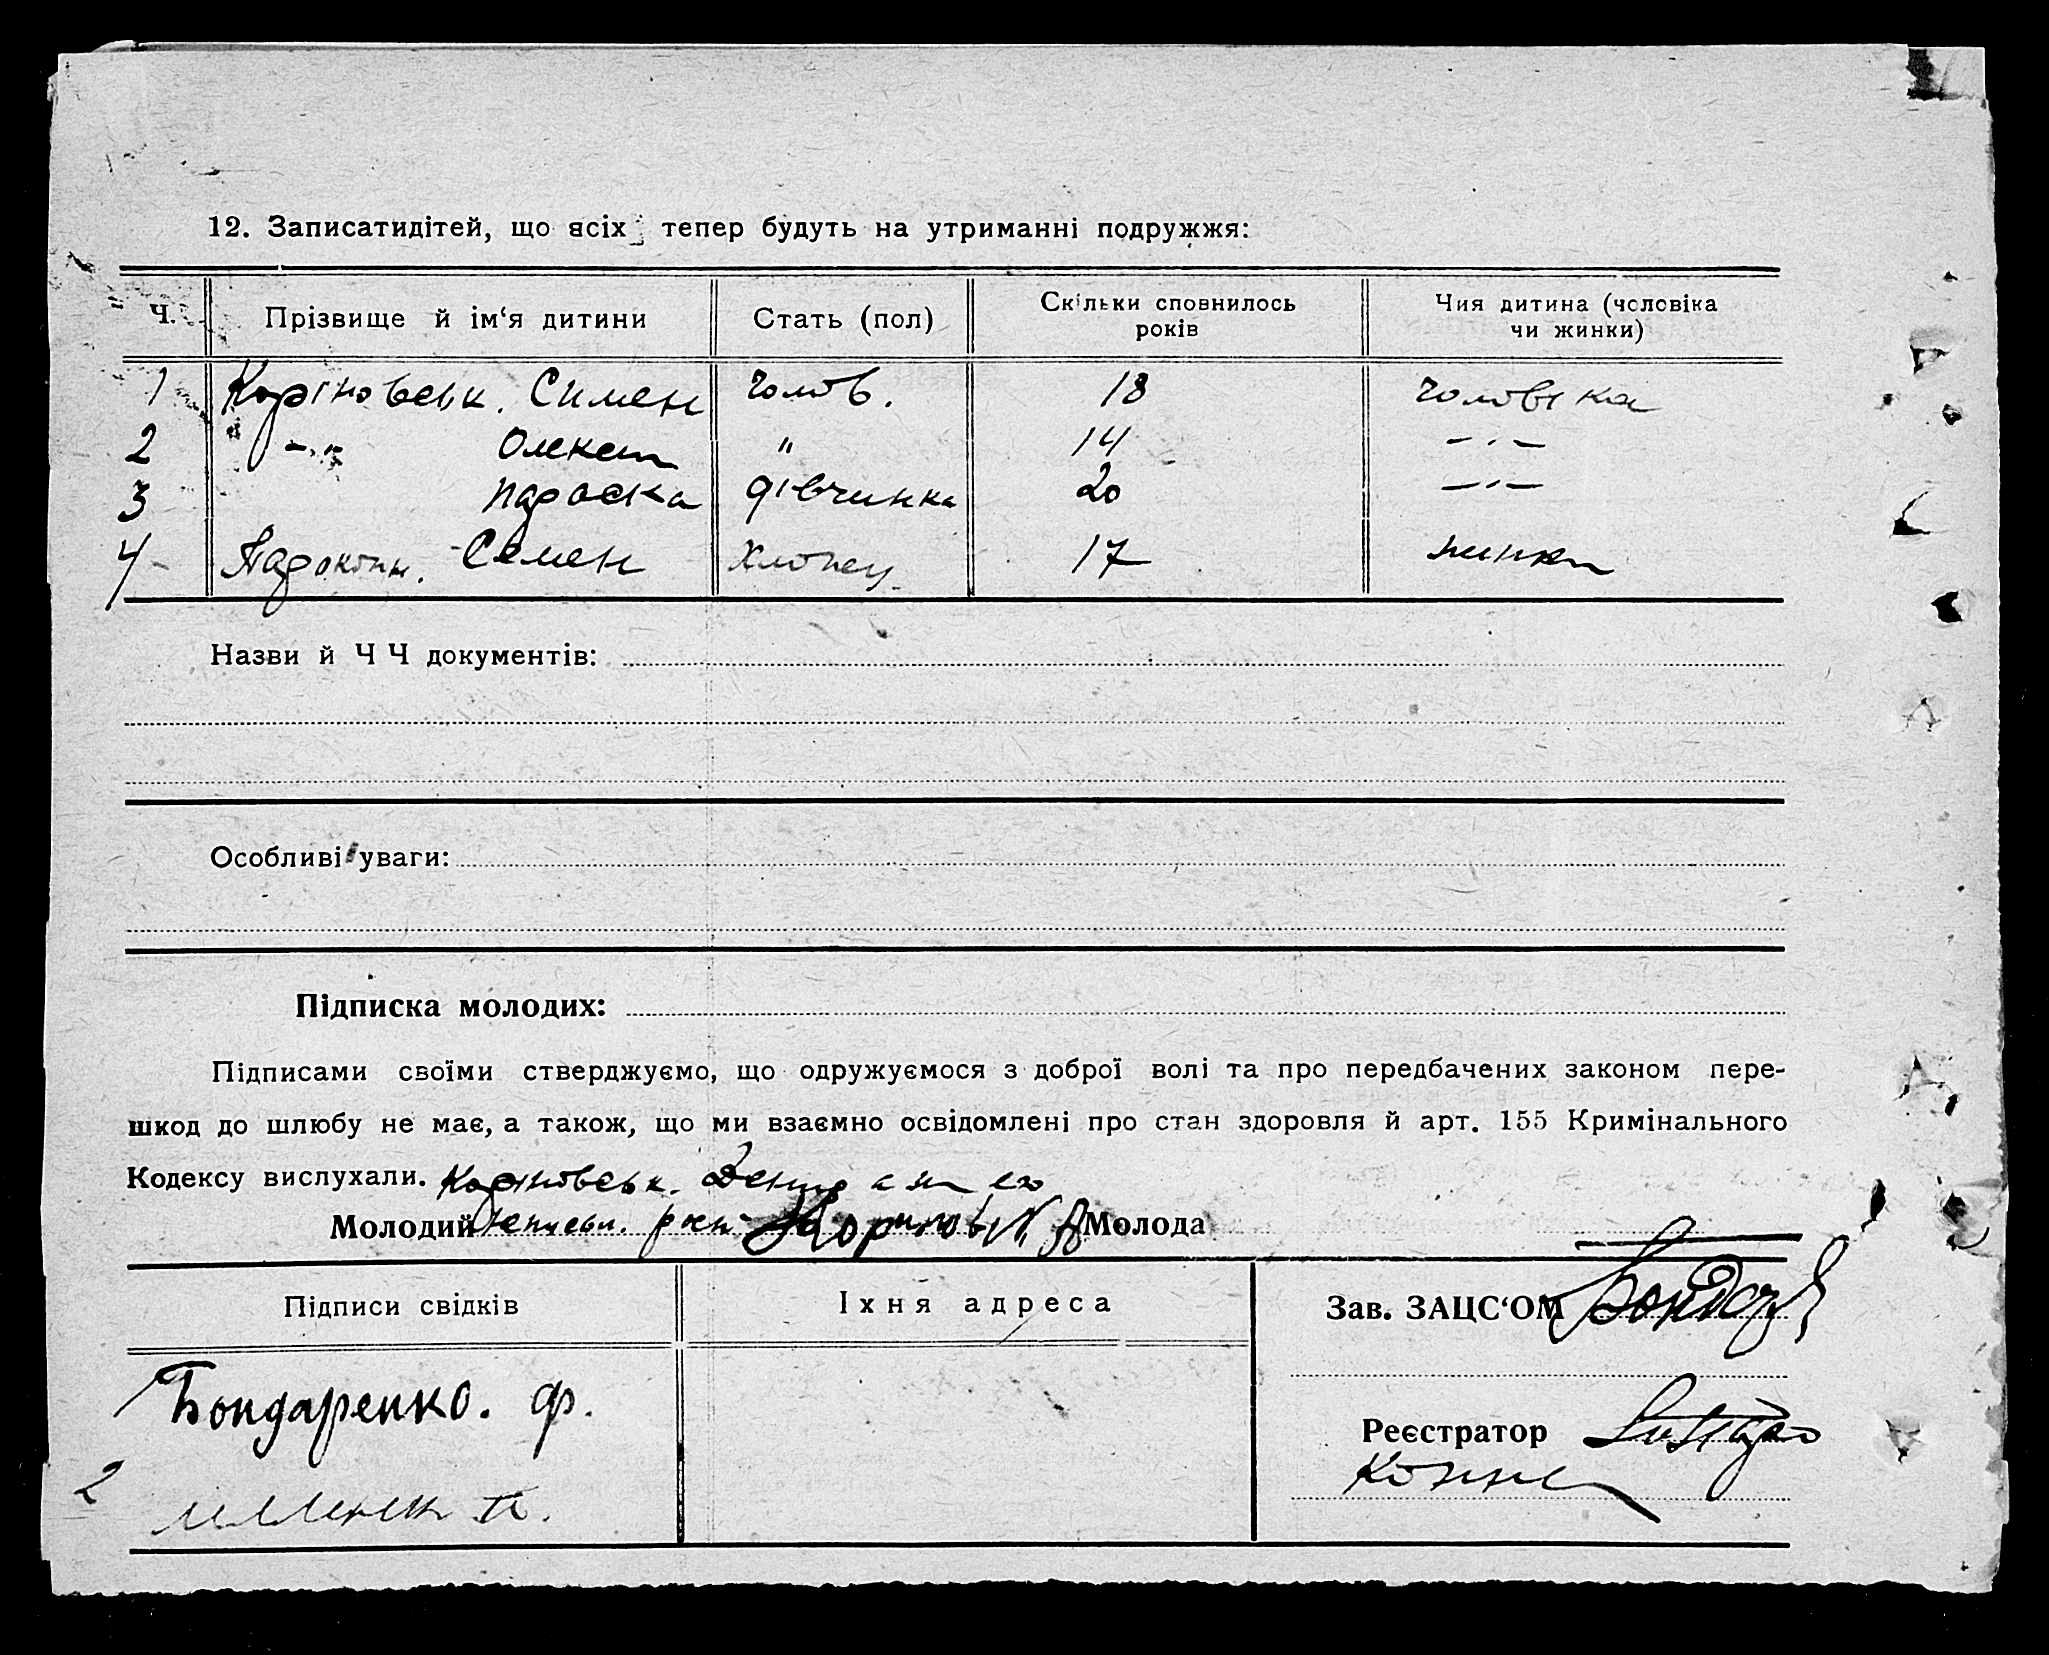 12. Записатидітей, що всіх тепер будуть на утриманні подружжя:
Ч. Прізвище й ім‘я дитини Стать (пол) Скільки сповнилось років Чия дитина (чоловіка чи жинки)
1 Коріновськ. Симен Чолов. 18 Чоловіка
2 -"- Олексп " 14 -"-
3 Параска дівчинка 20 -"-
4 Семен Хлопец 17 жинки
Назви й Ч Ч документів:
Особливі уваги:
Підписка молодих:
Підписами своїми стверджуємо, що одружуємося з доброї волі та про передбачених законом пере-
шкод до шлюбу не має, а також, що ми взаємно освідомлені про стан здоровля й арт. 155 Кримінального
Кодексу вислухали. Коріновськ.
Молодий Молода
Підписи свідків Їхня адреса Зав. ЗАЦС‘ОМ
Бондаренко. Ф.
Реєстратор
2